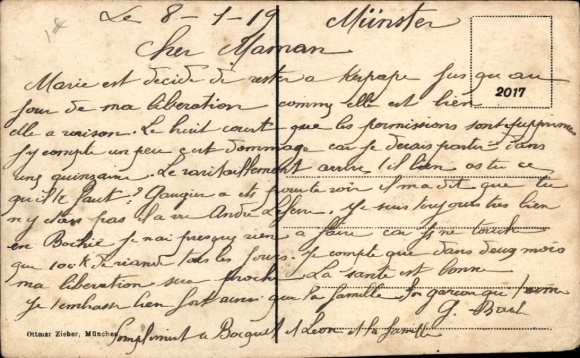 Le 8-1-19 Münster
Cher Maman
Marie est decidé de rester a Kerpape jusqu au
jour de ma liberation comme elle est bien
elle a raison. Le bruit court que les permissions sont supprimes
j'y compte un peu c'est dommage car je devais partir dans
une quinzaine. Le ravitaillement arrive t'il bien as tu ce
qu'il te faut? a eté pour te voir il m'a dit que tu
n'y étais pas il a vu André Je suis toujours tres bien
en Bochie Je n'ai presque rien a faire car je ne touche
que 100 K de viande tous les jours. Je compte que dans deux mois
ma liberation sera proche. La santé est bonne
Je t'embrasse bien fort ainsi que la famille Ton garçon qui t'aime
G.
Compliment a Bocquet et Leon et la famille
2017
Ottmar Zieher, München